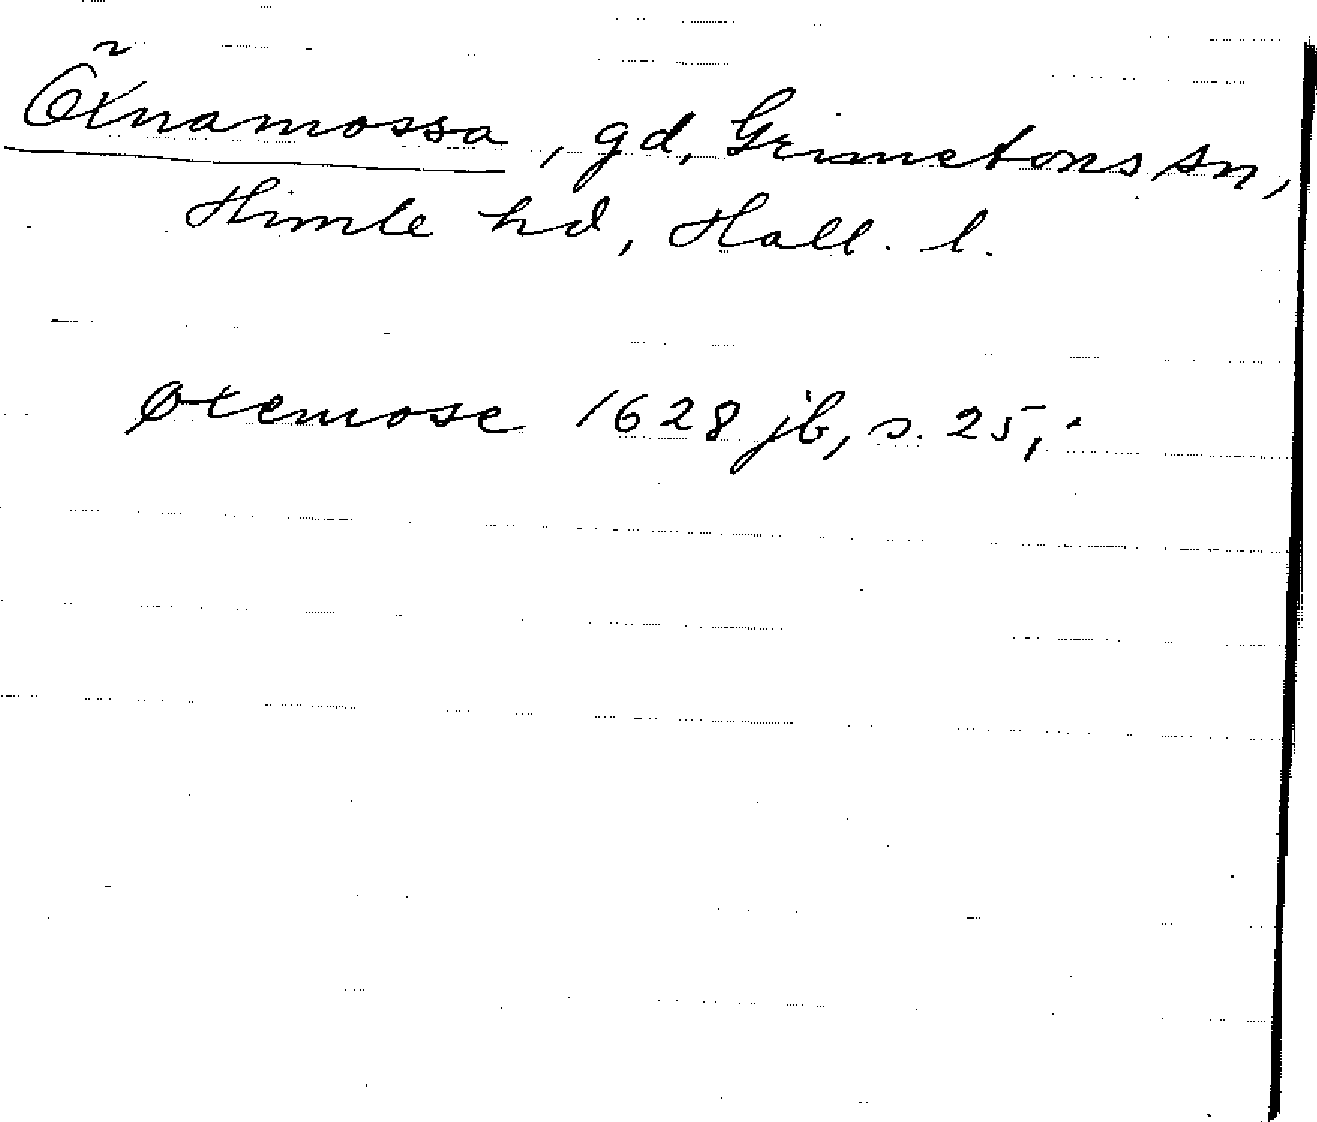 Öxnamossa, gd, Grimetons sn,
Himle hd, Hall. l.
Øxemose 1628 jb, s. 25,